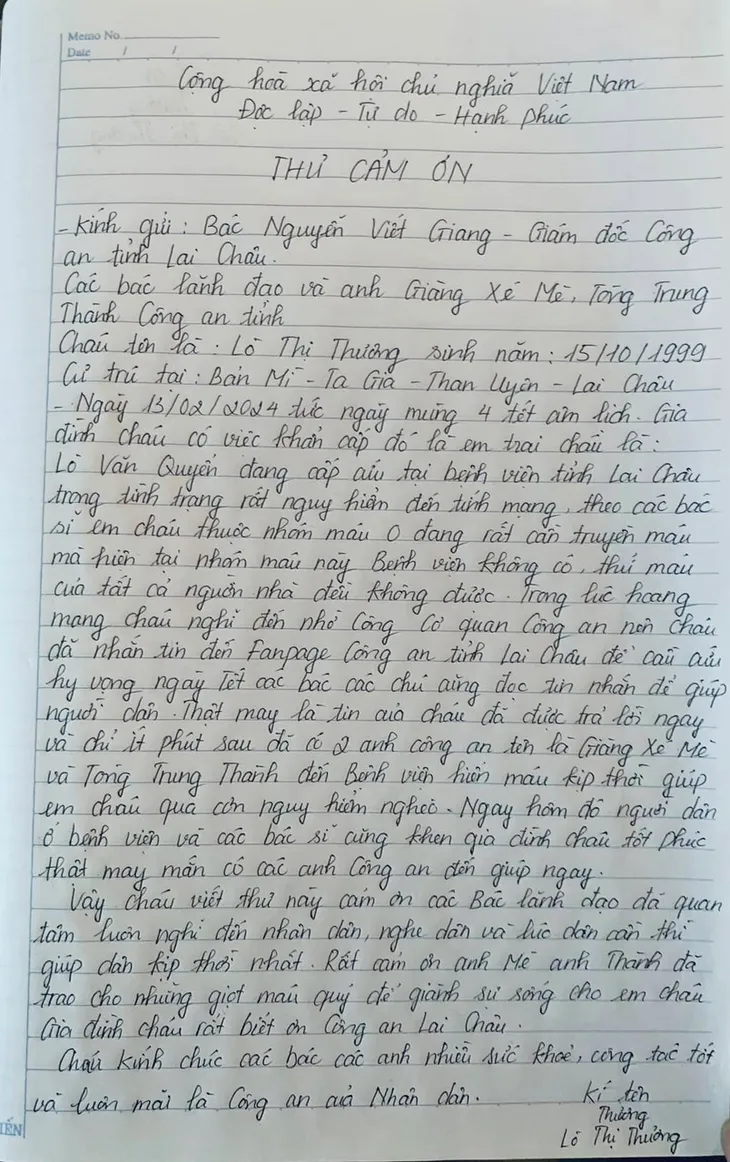 Memo No.
Date / /
Cộng hoà xã hội chủ nghĩa Việt Nam
Độc lập - Tự do - Hạnh phúc
THƯ CẢM ƠN
- Kính gửi : Bác Nguyễn Viết Giang - Giám đốc Công
an tỉnh Lai Châu.
Các bác lãnh đạo và anh Giàng Xé Mè, Tòng Trung
Thành Công an tỉnh
Cháu tên là : Lò Thị Thưởng sinh năm : 15/10/1999
Cư trú tại : Bản Mì - Ta Gia - Than Uyên - Lai Châu
- Ngày 13/02/2024 tức ngày mùng 4 tết âm lịch. Gia
đình cháu có việc khẩn cấp đó là em trai cháu là :
Lò Văn Quyền đang cấp cứu tại bệnh viện tỉnh Lai Châu
trong tình trạng rất nguy hiểm đến tính mạng, theo các bác
sĩ em cháu thuộc nhóm máu O đang rất cần truyền máu
mà hiện tại nhóm máu này Bệnh viện không có, thử máu
của tất cả người nhà đều không được. Trong lúc hoang
mang cháu nghĩ đến nhờ Công Cơ quan Công an nên cháu
đã nhắn tin đến Fanpage Công an tỉnh Lai Châu để cầu cứu
hy vọng ngày Tết các bác các chú cũng đọc tin nhắn để giúp
người dân. Thật may là tin của cháu đã được trả lời ngay
và chỉ ít phút sau đã có 2 anh công an tên là Giàng Xé Mè
và Tòng Trung Thành đến Bệnh viện hiến máu kịp thời giúp
em cháu qua cơn nguy hiểm nghèo. Ngay hôm đó người dân
ở bệnh viện và các bác sĩ cũng khen gia đình cháu tốt phúc
thật may mắn có các anh Công an đến giúp ngay.
Vậy cháu viết thư này cám ơn các Bác lãnh đạo đã quan
tâm luôn nghĩ đến nhân dân, nghe dân và lúc dân cần thì
giúp dân kịp thời nhất. Rất cám ơn anh Mè anh Thành đã
trao cho những giọt máu quý để giành sự sống cho em cháu
Gia đình cháu rất biết ơn Công an Lai Châu.
Cháu kính chúc các bác các anh nhiều sức khoẻ, công tác tốt
và luôn mãi là Công an của Nhân dân.
Kí tên
Thưởng
Lò Thị Thưởng